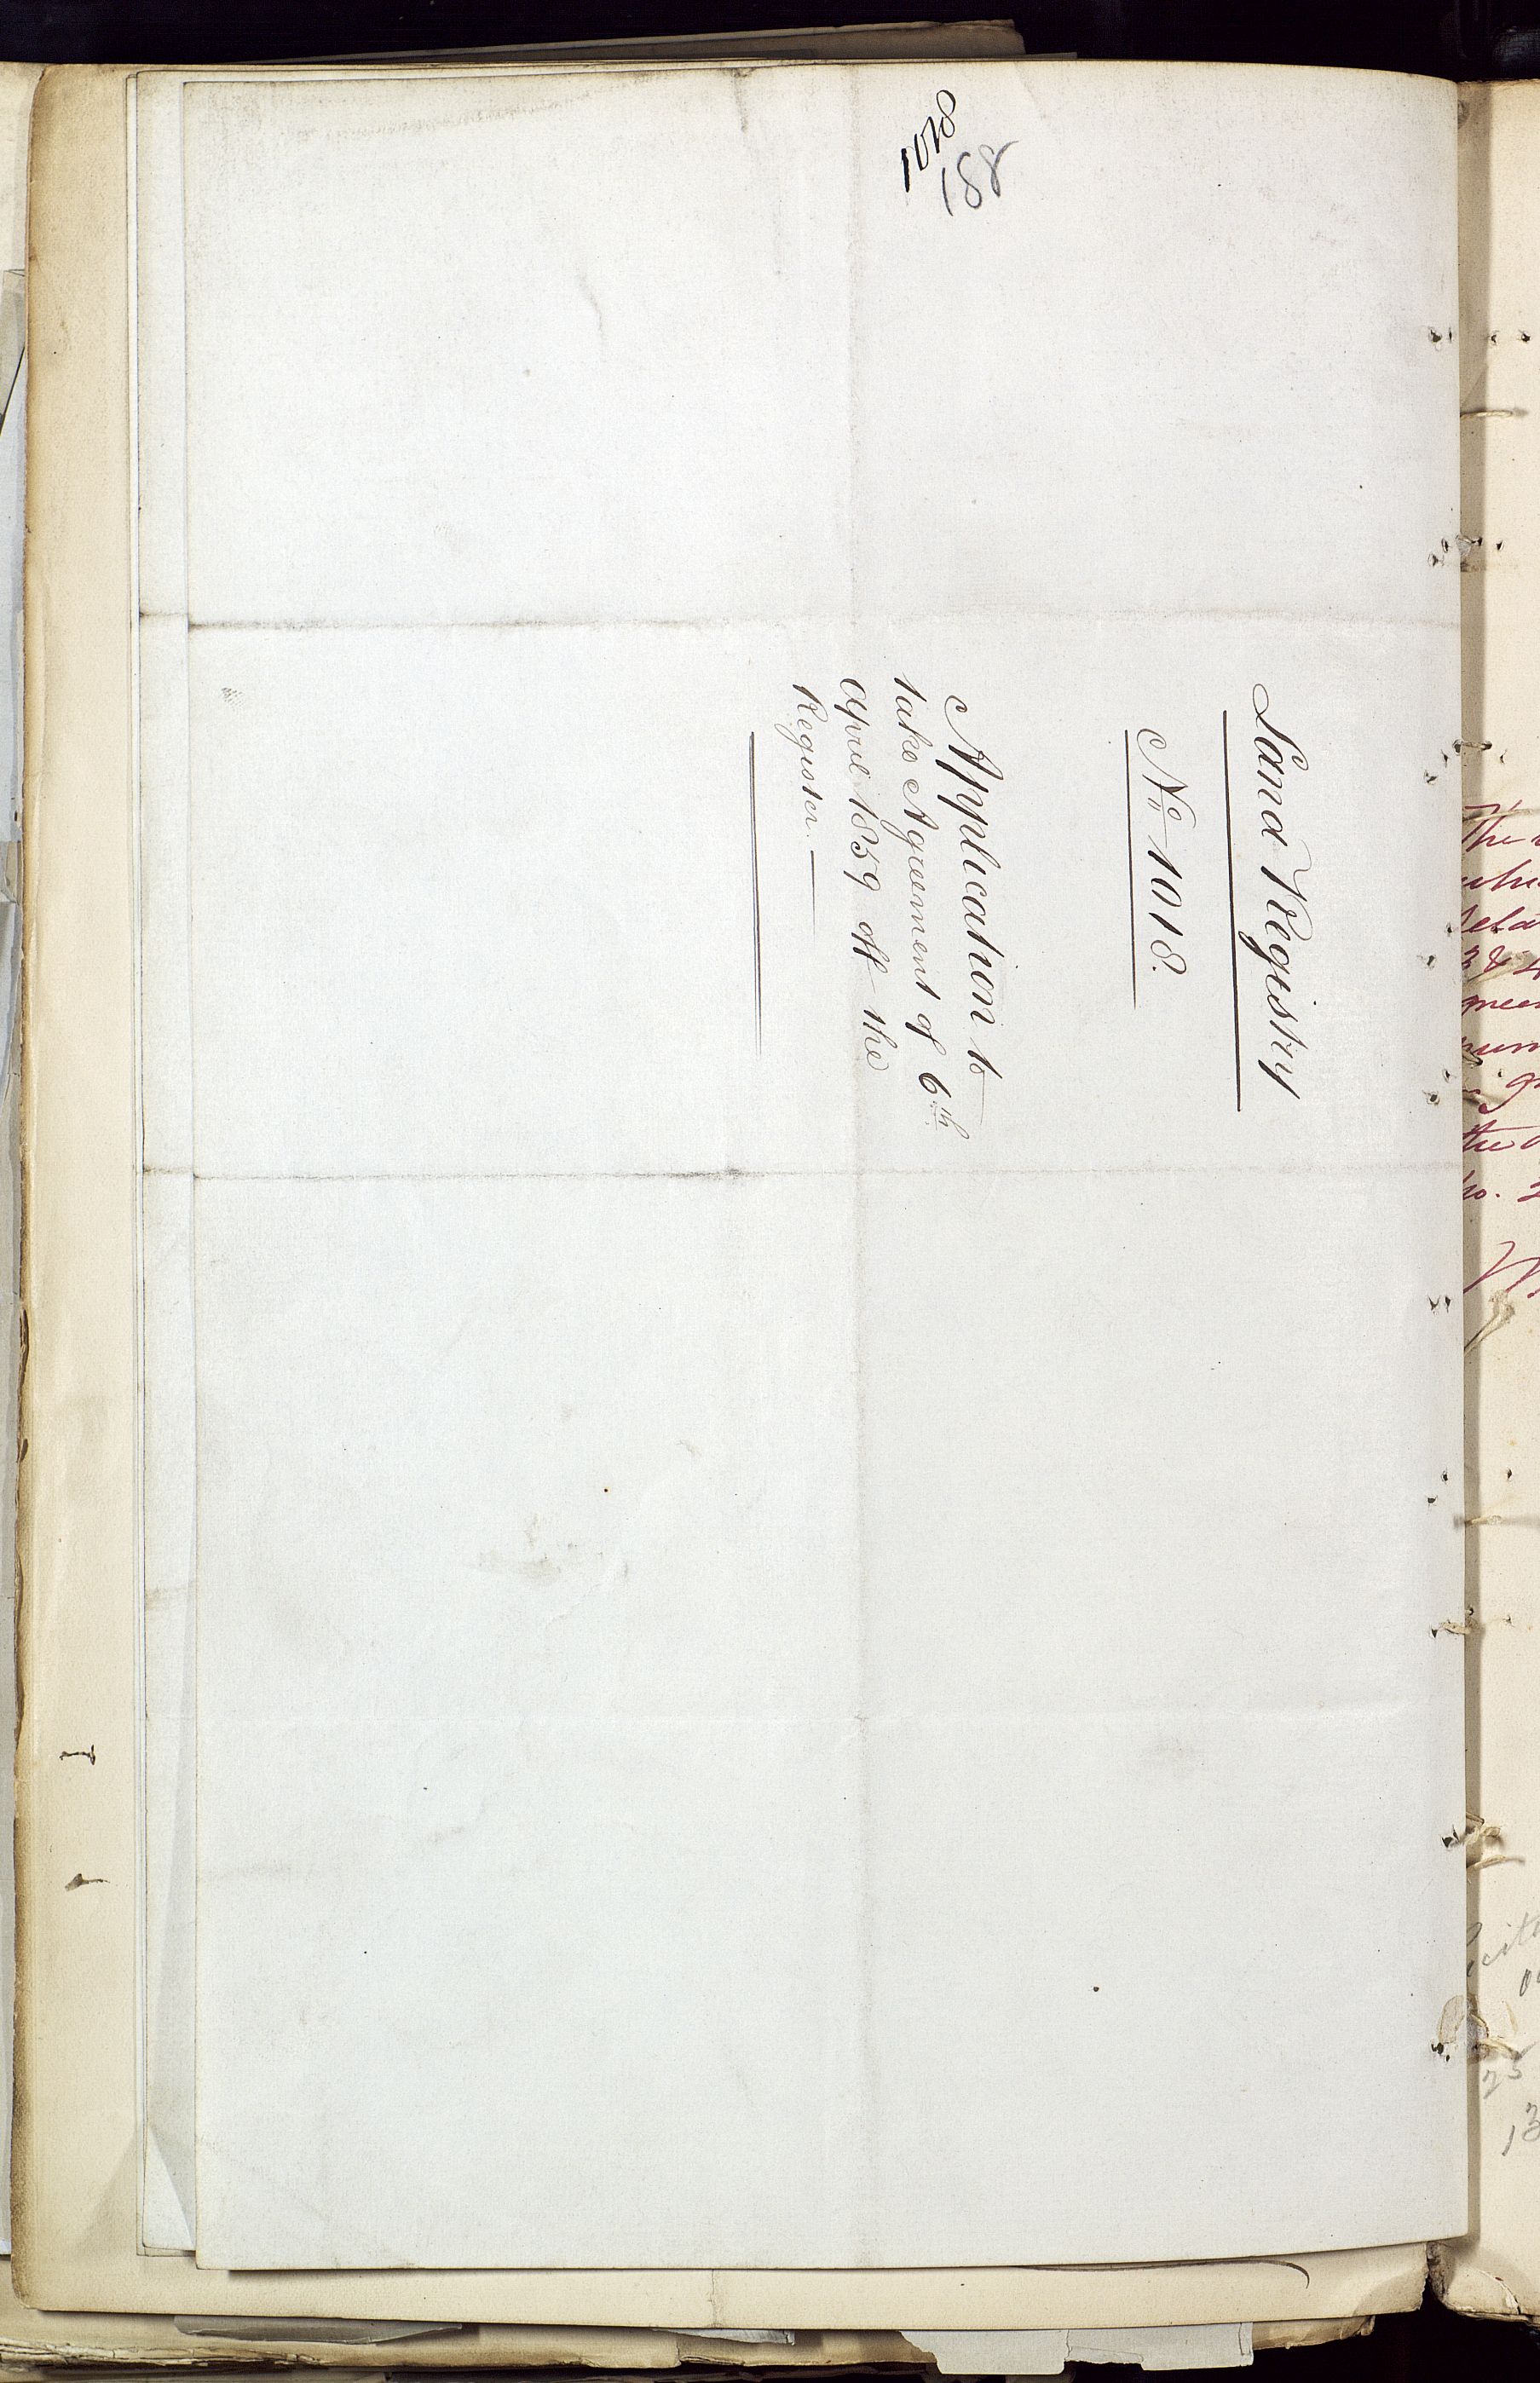 1018
188
Land Registry
No 1018.
Application to
take Agreement of 6th
April 1859 off the
Register.
The
3 &
the
No.
13